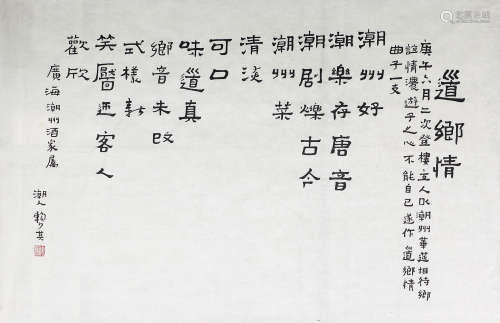 道鄉情
庚午六月二次登樓主人以潮州華筵相待鄉
誼情濃遊子之心不能自已遂作道鄉情
曲子一支
潮州好
潮樂存唐音
潮劇爍古今
潮州菜
清淡
可口
味道真
鄉音未改
式樣新
笑靨迎客人
歡欣
廣海潮州酒家屬
潮人賴少其